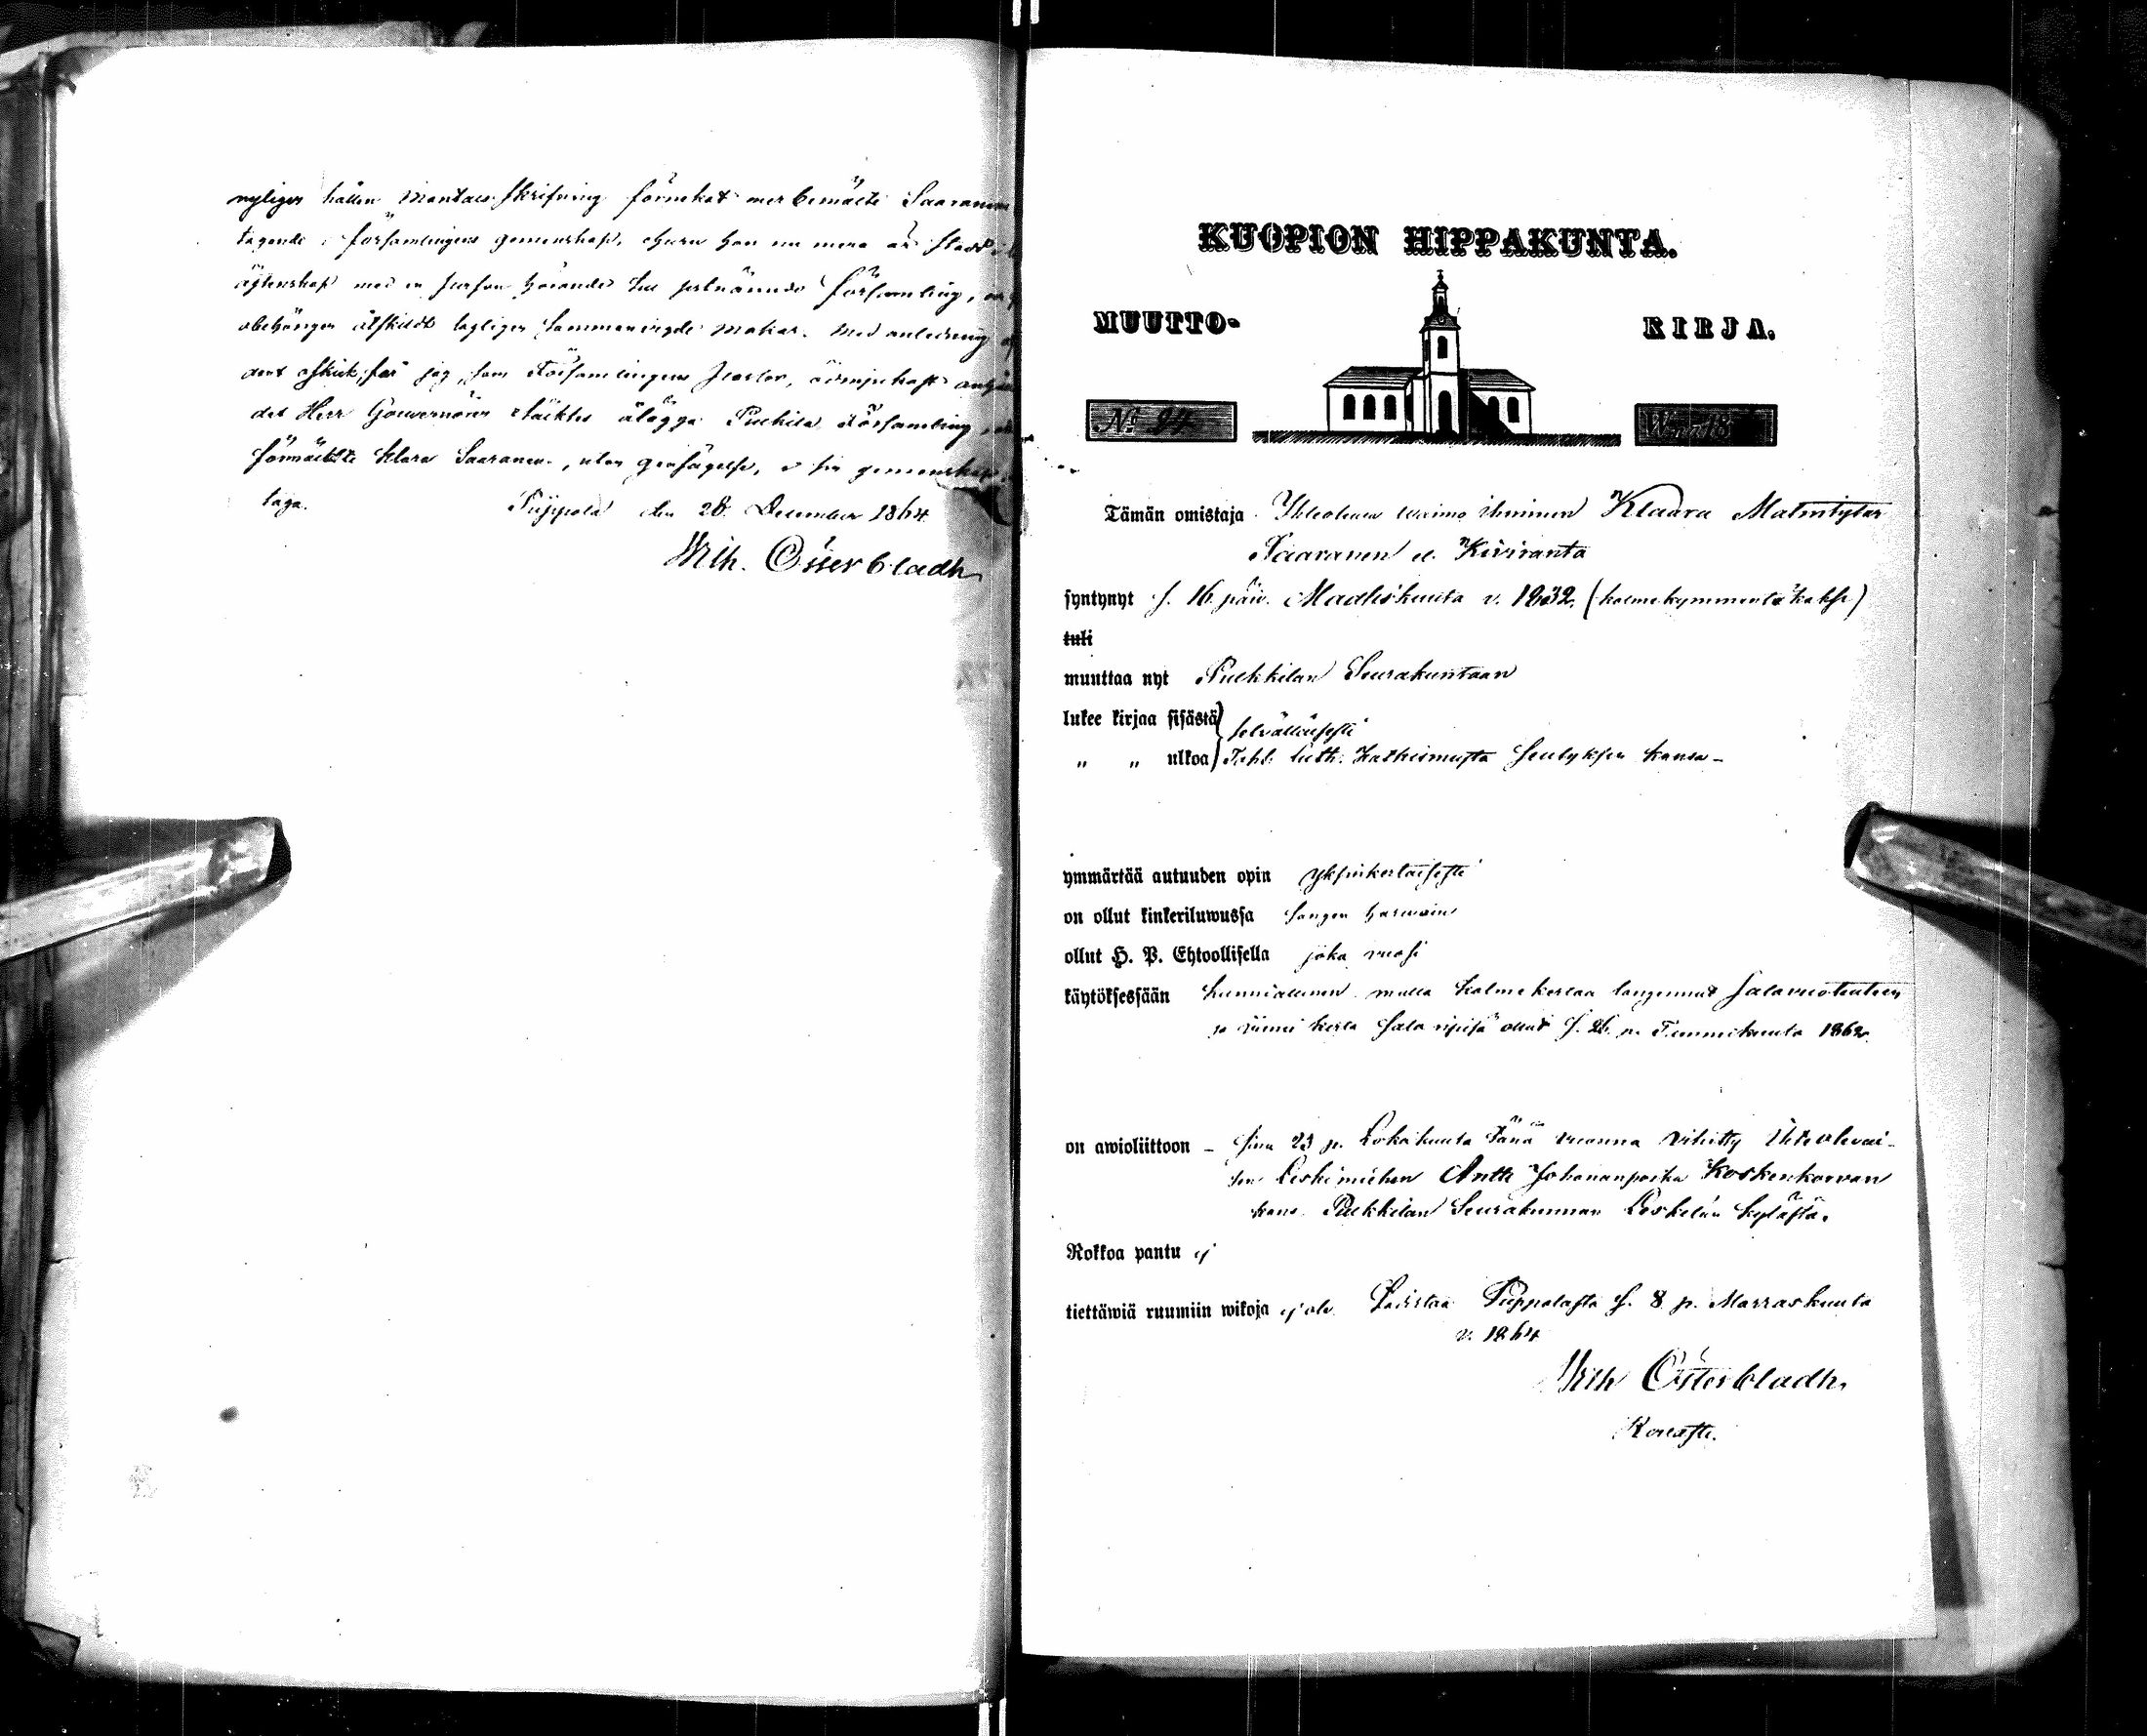 nyligen hållen Mantals skrifning förnekat merbemälte Saaranen
tagande i församlingens gemenskap, churu hon nu mera är stadd i
äktenskap med en person hörande till
obehörigen åtskilds lagligen sammanvigde makar. Med anledning
deraf får jag, som Församlingens Pastor, ödmjukast
det Herr Gouvernören täcktes ålägga Pulkkila Församling
förmälte Klara Saaranen, utan gensägelse, i sin gemenskap
taga. Piippola den 28 December 1864.
Wilh. Österbladh
KUOPION HIPPAKUNTA.
MUUTTO- KIRJA.
No 24
Tämän omistaja Itselleen waimo ihminen Klaara Matintytär
Saaranen e. Kiviranta
syntynyt s. 16 päiv. Maaliskuuta v. 1832. (kolmekymmentä kaksi)
tuli
muuttaa nyt Pulkkilan Seurakuntaan
lukee kirjaa sisästä selvällisesti
" " ulkoa Luth. Katkismusta Selityksen kanssa -
ymmärtää autuuden opin yksinkertaisesti
on ollut kinkeriluwussa sangen harwoin
ollut H. P. Ehtoollisella joka vuosi
käytöksessään kunniallinen mutta kolme kertaa langennut salavuoteuteen
ja viime kerta sala ripissä ollut s. 26 p. Tammikuuta 1862.
on awioliittoon - sinä 23 p. Lokakuuta tänä vuonna vihitty Itsellevai-
sen Leskimiehen Antti Johananpoika Koskenkorvan
kans. Pulkkilan Seurakunnan Leskelän kylästä.
Rokkoa pantu ej
tiettäwiä ruumiin wikoja ej ole. Todistaa Piippolasta s. 8 p. Marraskuuta
v. 1864
Wilh Österbladh.